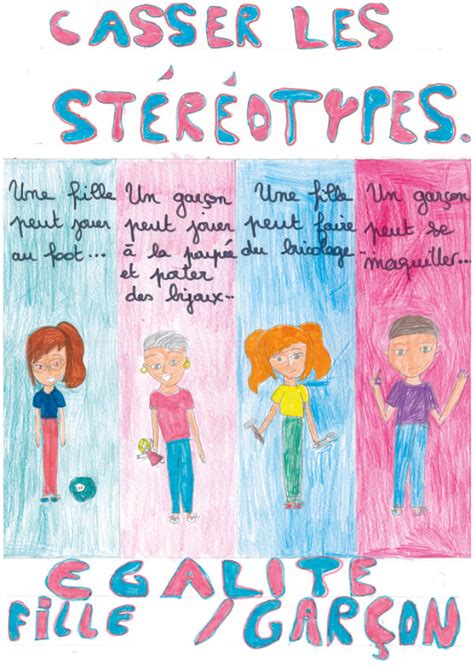 CASSER LES
STÉRÉOTYPES.
Une fille
peut jouer
au foot...
Un garçon
peut jouer
à la poupée
et porter
des bijoux...
Une fille
peut faire
du bricolage
Un garçon
peut se
maquiller...
EGALITE
FILLE / GARÇON